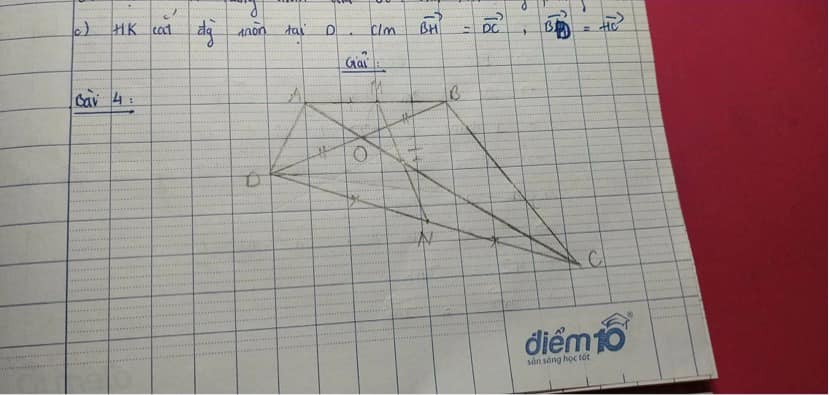 c) HK cắt đg tròn tại D. C/m BH = DC, BD = HC
Giải:
Bài 4:
A M B
O I
D
N
C
điểm10
sẵn sàng học tốt